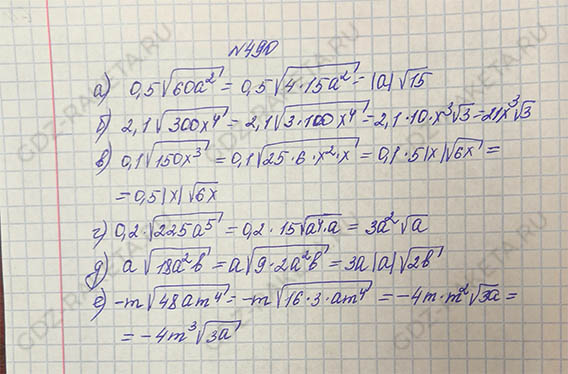 №490
а) 0,5√60a² = 0,5√4·15a² = |a|√15
б) 2,1√300x⁴ = 2,1√3·100x⁴ = 2,1·10·x³√3 = 21x³√3
в) 0,1√150x³ = 0,1√25·6·x²·x = 0,1·5|x|√6x =
= 0,5|x|√6x
г) 0,2·√225a⁵ = 0,2·15√a⁴·a = 3a²√a
д) a√18a²b = a√9·2a²b = 3a|a|√2b
е) -m√48am⁴ = -m√16·3·am⁴ = -4m·m²√3a =
= -4m³√3a
GDZ-RAKETA.RU